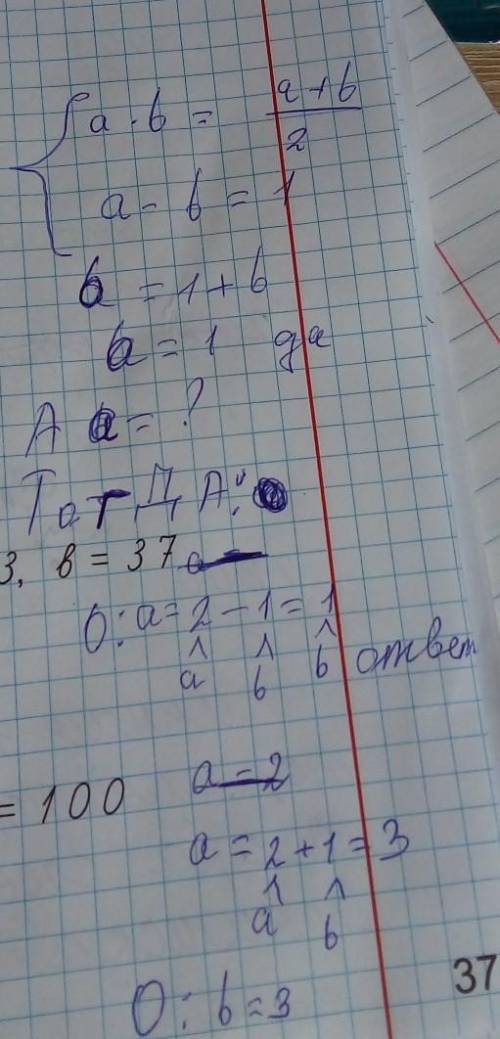 a · b = a+b / 2
a - b = 1
a = 1 + b
b = 1 да
А a = ?
ТогДА:
3, в = 37
О: a = 2 - 1 = 1
^ ^ ^
a b b ответ
= 100 a = 2
a = 2 + 1 = 3
^ ^
a b
О: b = 3
37